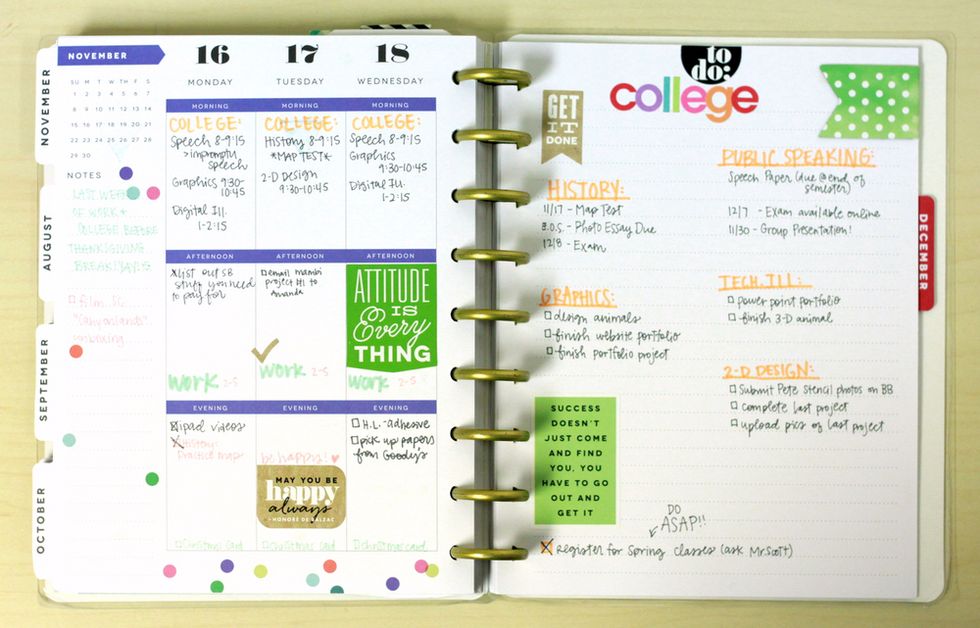 NOVEMBER
SU M T W TH F S
1 2 3 4 5 6 7
8 9 10 11 12 13 14
15 16 17 18 19 20 21
22 23 24 25 26 27 28
29 30
NOTES
LAST WEEK
OF WORK +
COLLEGE BEFORE
THANKSGIVING
BREAK!
film
unboxing
NOVEMBER
AUGUST
SEPTEMBER
OCTOBER
16
MONDAY
MORNING
COLLEGE:
Speech 8-9:15
>impromptu
speech
Graphics 9:30-
10:45
Digital Ill.
1-2:15
AFTERNOON
List out SB
stuff you need
to pay for
work 2-5
EVENING
ipad videos
History:
Practice maps
Christmas card
17
TUESDAY
MORNING
COLLEGE:
History 8-9:15
*MAP TEST*
2-D Design
9:30-10:45
AFTERNOON
email mambi
project #1 to
Amanda
work 2-5
EVENING
be happy!
MAY YOU BE
happy
always
-HONORE DE BALZAC
Christmas card
18
WEDNESDAY
MORNING
COLLEGE:
Speech 8-9:15
Graphics
9:30-10:45
Digital Ill.
1-2:15
AFTERNOON
ATTITUDE
IS
Every
THING
work 2-5
EVENING
H.L.-adhesive
pick up papers
from Goodys
Christmas card
to
do:
college
GET
IT
DONE
HISTORY:
11/17 - Map Test
E.O.S. - Photo Essay Due
12/8 - Exam
GRAPHICS:
design animals
finish website portfolio
finish portfolio project
SUCCESS
DOESN'T
JUST COME
AND FIND
YOU, YOU
HAVE TO GO
OUT AND
GET IT
PUBLIC SPEAKING:
Speech Paper (due @ end of
semester)
12/7 - Exam available online
11/30 - Group Presentation!
TECH. ILL:
power point portfolio
finish 3-D animal
2-D DESIGN:
Submit Pete stencil photos on BB
complete last project
upload pics of last project
DO
ASAP!!
Register for Spring classes (ask Mr.Scott)
DECEMBER